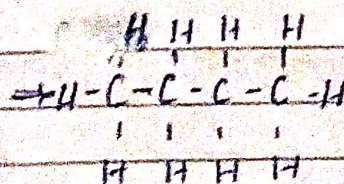 H H H H
⇒ H-C-C-C-C-H
H H H H